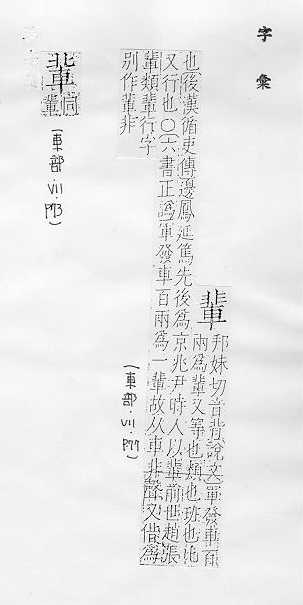 字彙
輩
邦妹切音背說文軍發車百
兩為輩又等也類也班也比
也後漢循吏傳邊鳳延篤先後為京兆尹時人以輩前世趙張
又行也○六書正譌軍發車百兩為一輩故从車非聲又借為
輩類輩行字
別作軰非
(車部.VII.P77)
軰
同
輩
(車部.VII.P73)